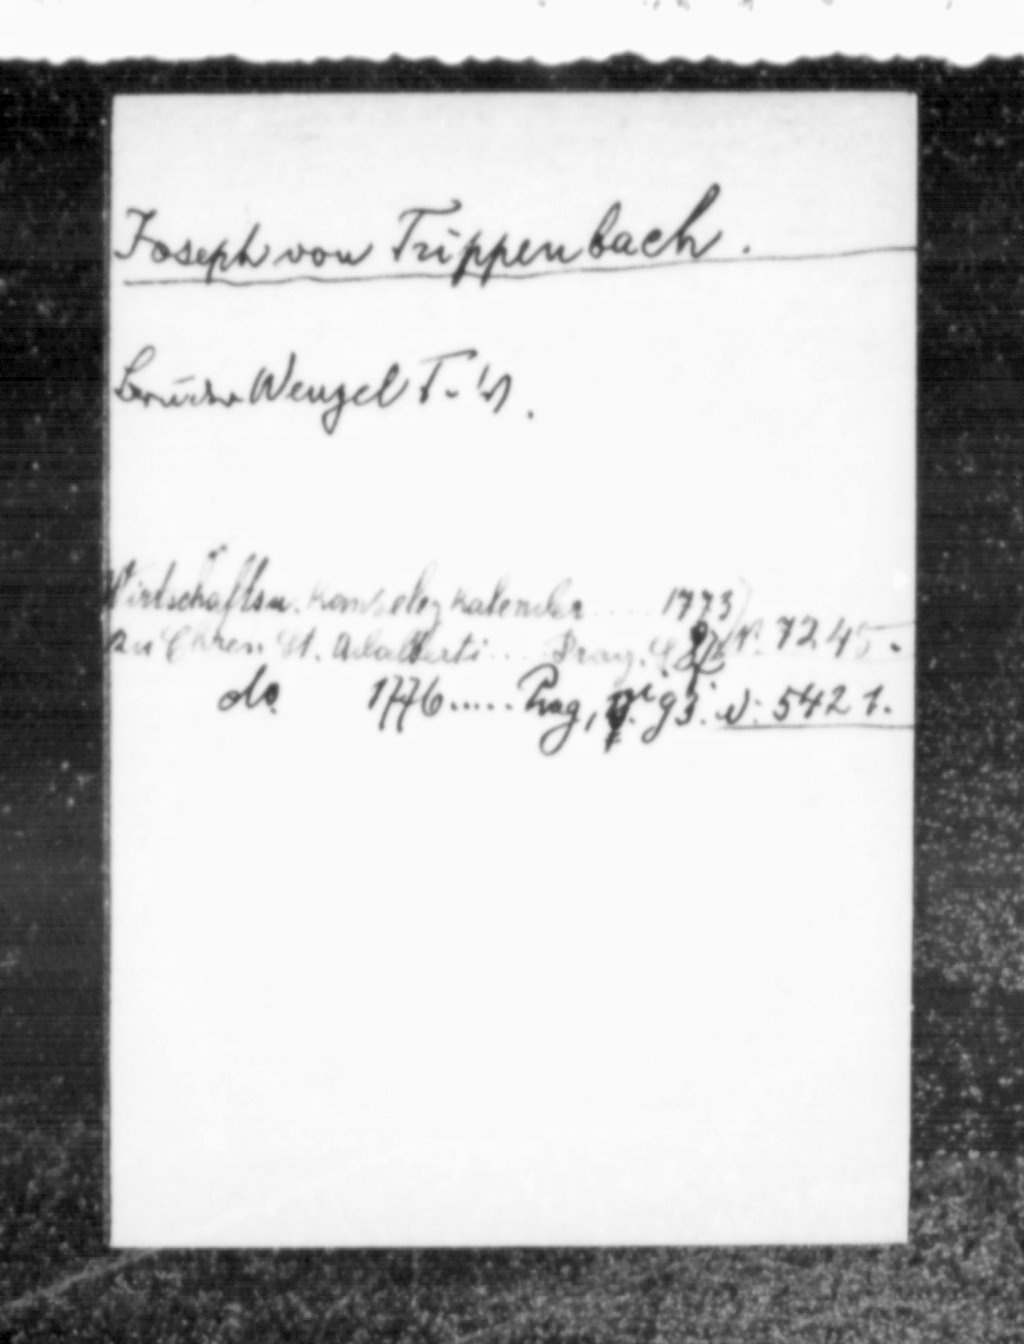 Joseph von Trippenbach.
Bruder Wenzel T.'s.
Wirtschafts u. Kanzeley Kalender .... 1773
zu Ehren St. Adalberti ... Prag. N. 7245.
do. 1776..... Prag, N. 5421.